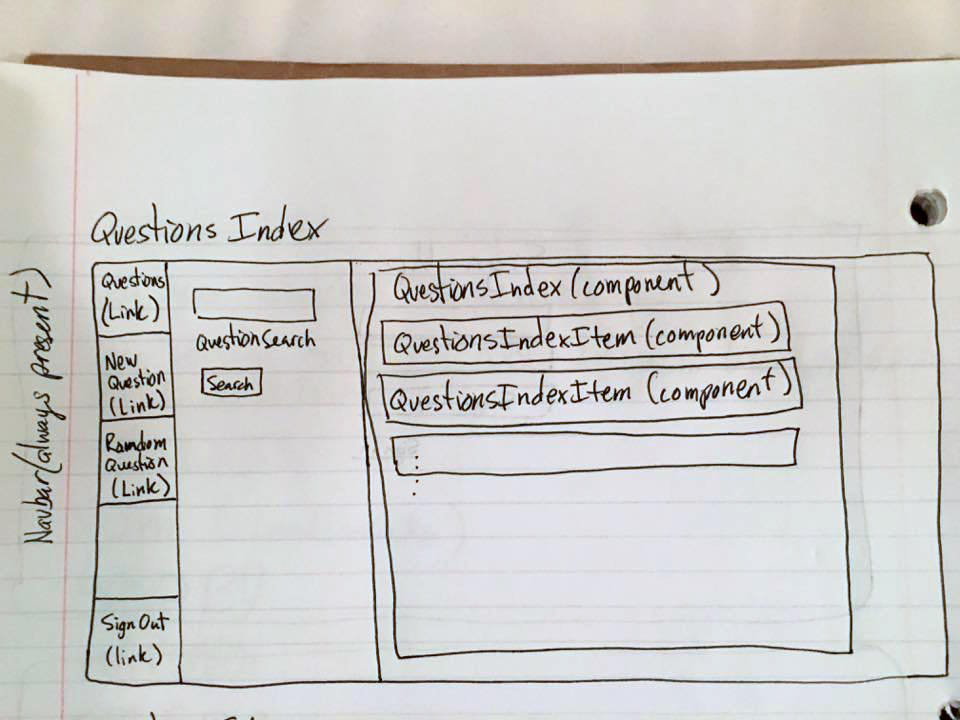 Questions Index
Navbar (always present)
Questions
(Link)
New
Question
(Link)
Random
Question
(Link)
Sign Out
(link)
QuestionSearch
Search
QuestionsIndex (component)
QuestionsIndexItem (component)
QuestionsIndexItem (component)